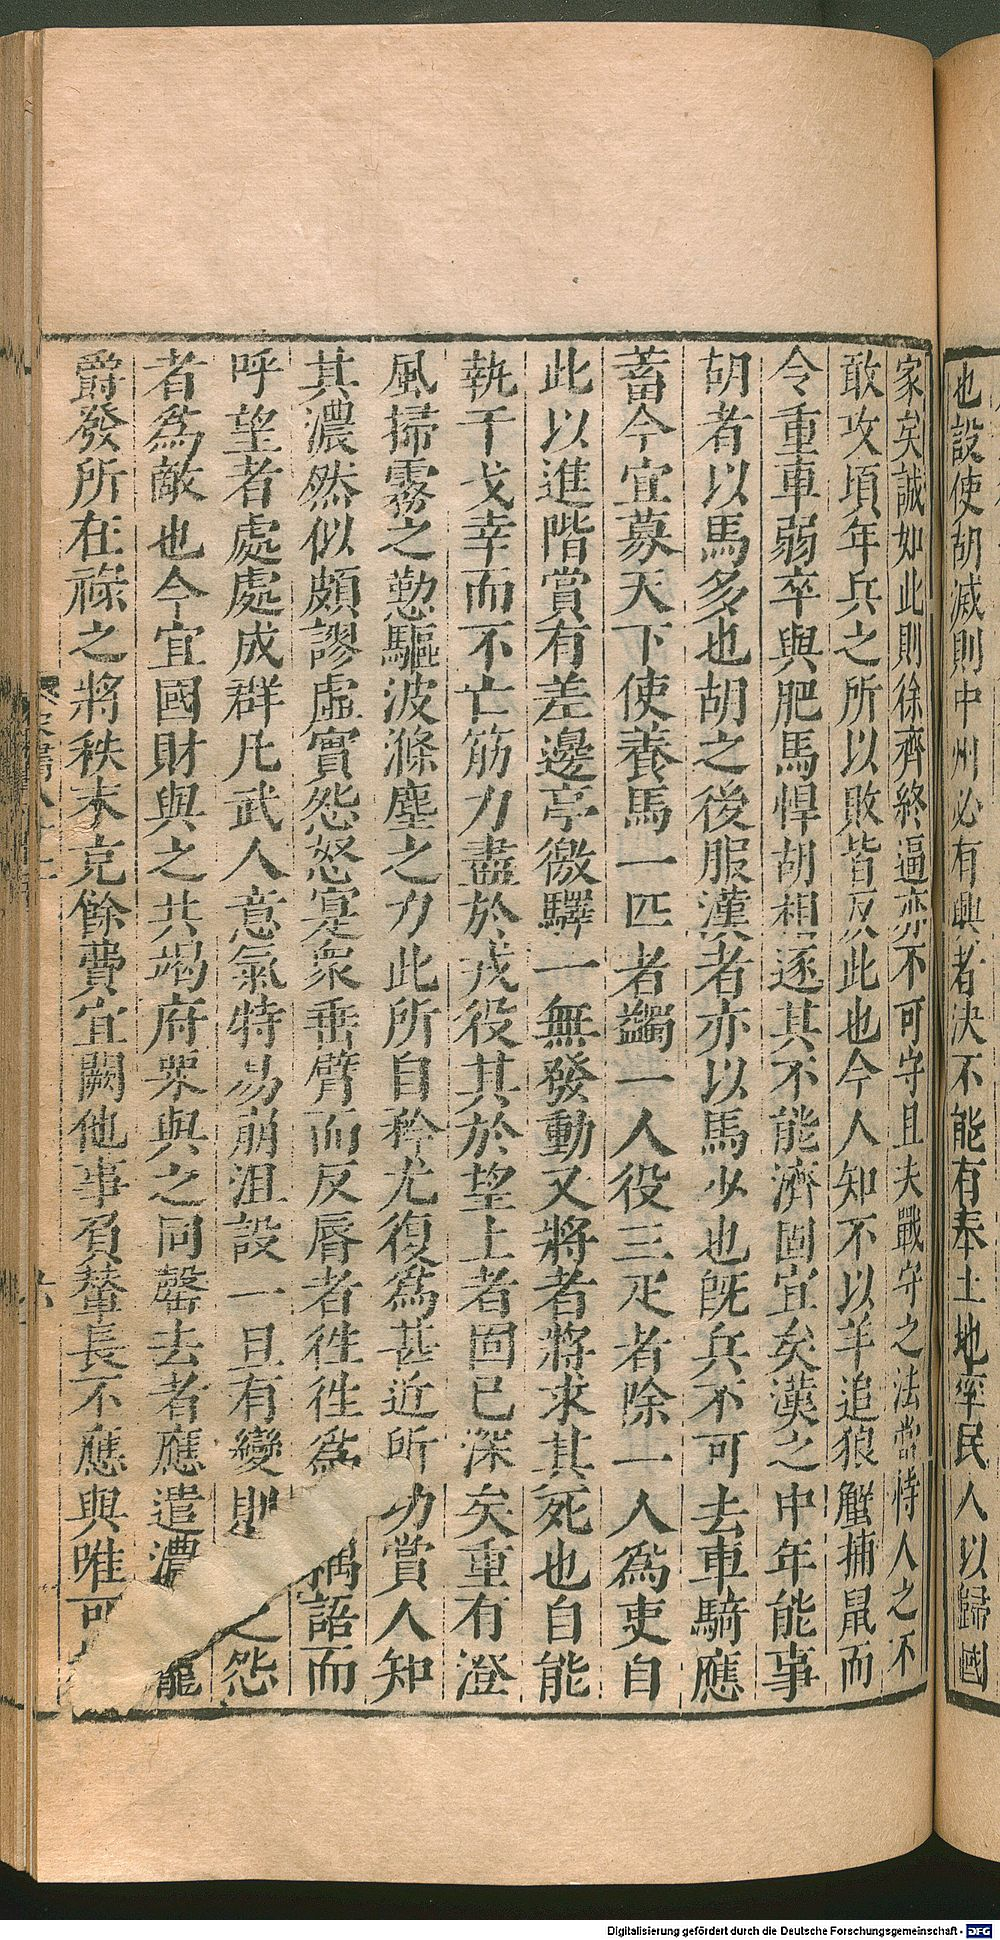 也設使胡滅則中州必有興者决不能有奉土地率民人以歸國
家矣誠如此則徐齊終逼亦不可守且夫戰守之法當恃人之不
敢攻頃年兵之所以敗皆反此也今人知不以羊追狼蟹捕鼠而
令重車弱卒與肥馬悍胡相逐其不能濟固宜矣漢之中年能事
胡者以馬多也胡之後服漢者亦以馬少也旣兵不可去車騎應
蓄今宜募天下使養馬一匹者蠲一人役三疋者除一人爲吏自
此以進階賞有差邊亭徼驛一無發動又將者將求其死也自能
執干戈幸而不亡筋力盡於戎役其於望上者固已深矣重有澄
風掃霧之勤驅波滌塵之力此所自矜尤復爲甚近所功賞人知
其濃然似頗謬虛實怨怒寔衆垂臂而反脣者徃徃爲
語而
呼望者處處成群凡武人意氣特易崩沮設一旦有變則
怨
者爲敵也今宜國財與之共竭府粟與之同罄去者應遣濃
能
爵發所在祿之將秩未充餘費宜闕他事負輦長不應與唯可
宋書八十二
六
Digitalisierung gefördert durch die Deutsche Forschungsgemeinschaft - DFG